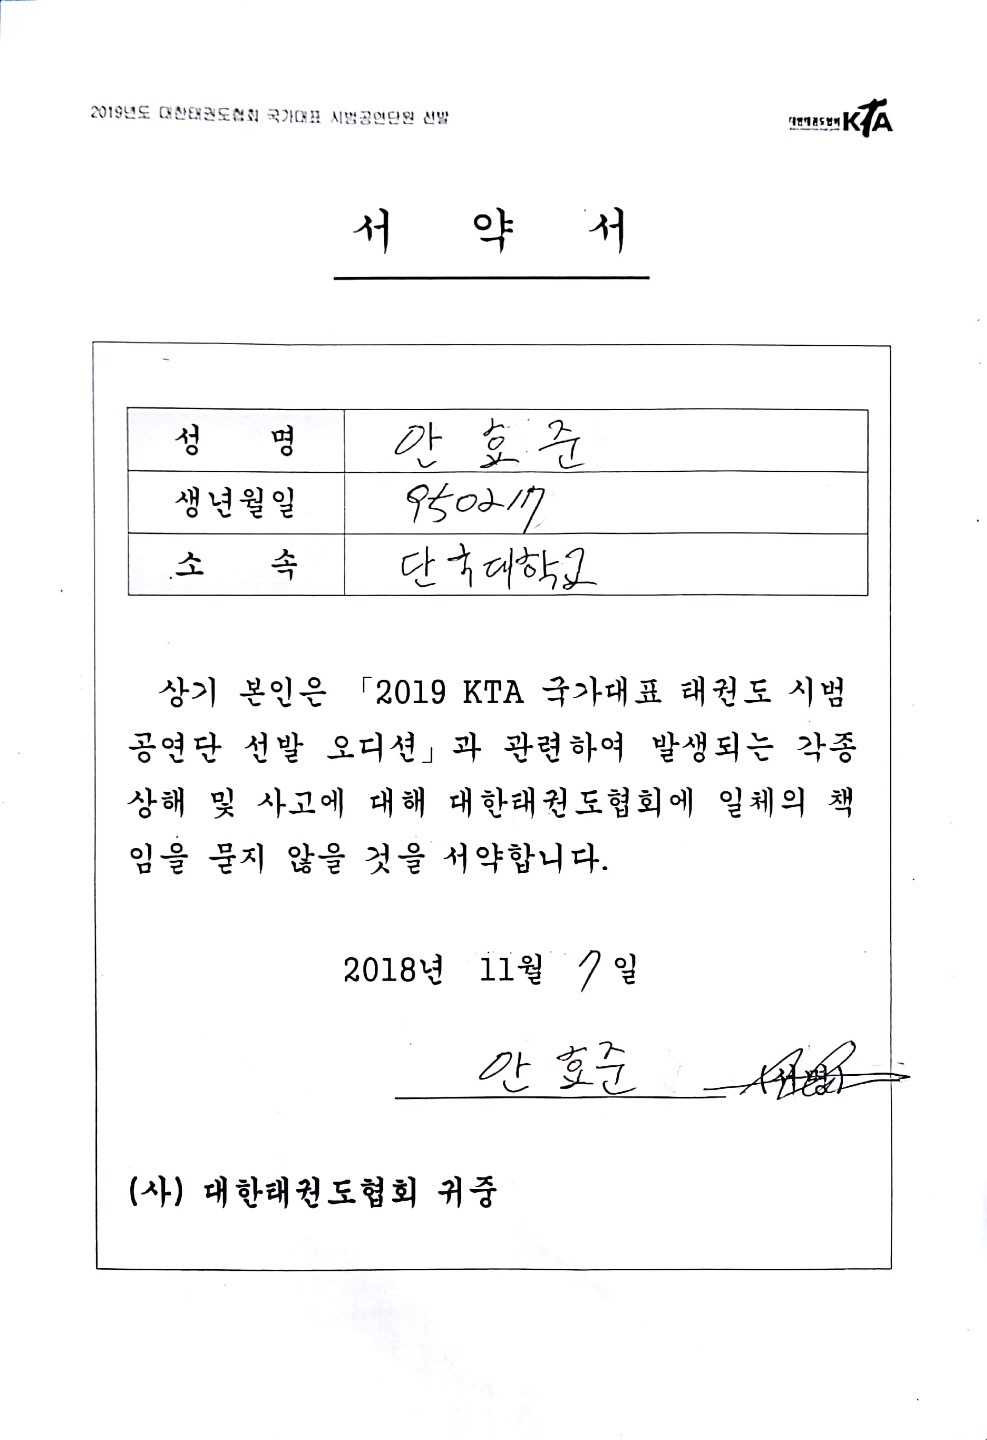 2019년도 대한태권도협회 국가대표 시범공연단원 선발
대한태권도협회 KTA
서 약 서
성 명 안효준
생년월일 950217
소 속 단국대학교
상기 본인은 「2019 KTA 국가대표 태권도 시범
공연단 선발 오디션」과 관련하여 발생되는 각종
상해 및 사고에 대해 대한태권도협회에 일체의 책
임을 묻지 않을 것을 서약합니다.
2018년 11월 7일
안효준 (서명)
(사) 대한태권도협회 귀중